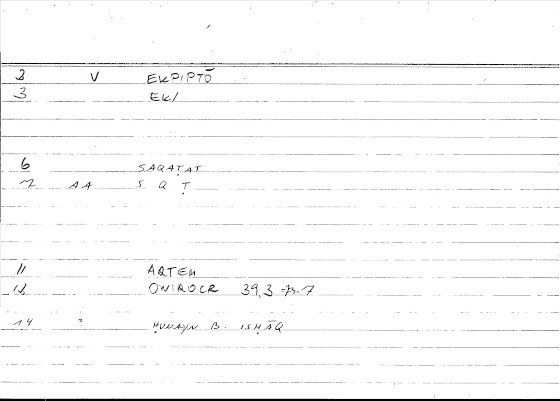 2 V EKPIPTŌ
3 EK/
6 SAQAṬAT
7 AA S Q Ṭ
11 ARTEM
12 ONIROCR 39,3 = p. 7
14 ? ḤUNAYN B. ISḤĀQ